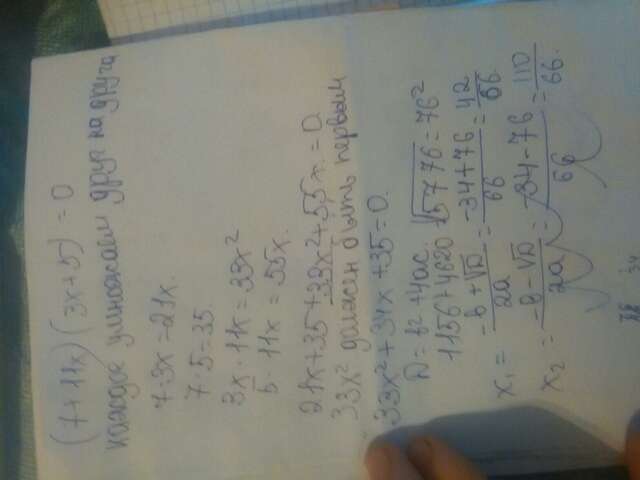 (7+11x)(3x+5)=0
каждое умножаем друг на друга
7·3x=21x.
7·5=35.
3x·11x=33x²
5·11x=55x.
21x+35+33x²+55x=0
33x² должен быть первым
33x²+34x+35=0.
D=b²+4ac.
1156+4620 √5776=76²
x₁=(-b+√D)/2a=(-34+76)/66=42/66.
x₂=(-b-√D)/2a=(-34-76)/66=110/66.